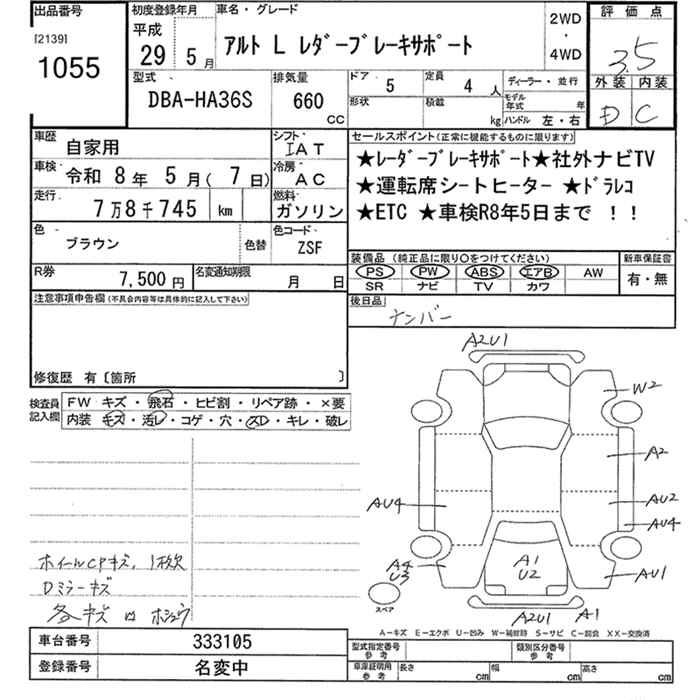 出品番号 初度登録年月 車名・グレード 2WD・4WD 評価点
[2139] 1055 平成 29 5月 アルト L レーダーブレーキサポート 3.5
型式 DBA-HA36S 排気量 660 CC ドア 5 定員 4人 ディーラー・並行 外装 内装
形状 積載 kg モデル年式 年 ハンドル 左・右 D C
車歴 自家用 シフト IAT セールスポイント(正常に機能するものに限ります)
車検 令和 8年 5月(7日) 冷房 AC ★レーダーブレーキサポート★社外ナビTV
走行 7万8千745 km 燃料 ガソリン ★運転席シートヒーター ★ドラレコ
★ETC ★車検R8年5日まで !!
色 ブラウン 色替 色コード ZSF
装備品(純正品に限り○をつけてください) 新車保証書
PS PW ABS エアB AW 有・無
SR ナビ TV カワ
R券 7,500円 名変通知期限 月 日
後日品 ナンバー
注意事項申告欄(不具合内容等は具体的に記入して下さい)
修復歴 有〔箇所 〕
検査員記入欄 FW キズ・飛石・ヒビ割・リペア跡・×要
内装 キズ・汚レ・コゲ・穴・スレ・キレ・破レ
A2U1
W2
A2
AU4
AU2
AU4
A4
U3
A1
U2
AU1
スペア
A2U1
A1
ホイールCPキズ、1枚欠
Dミラーキズ
各キズ
A-キズ E-エクボ U-凹み W-補修跡 S-サビ C-腐食 XX-交換済
車台番号 333105
登録番号 名変中
型式指定番号 参考 類別区分番号 参考
車庫証明用 参考 長さ cm 幅 cm 高さ cm